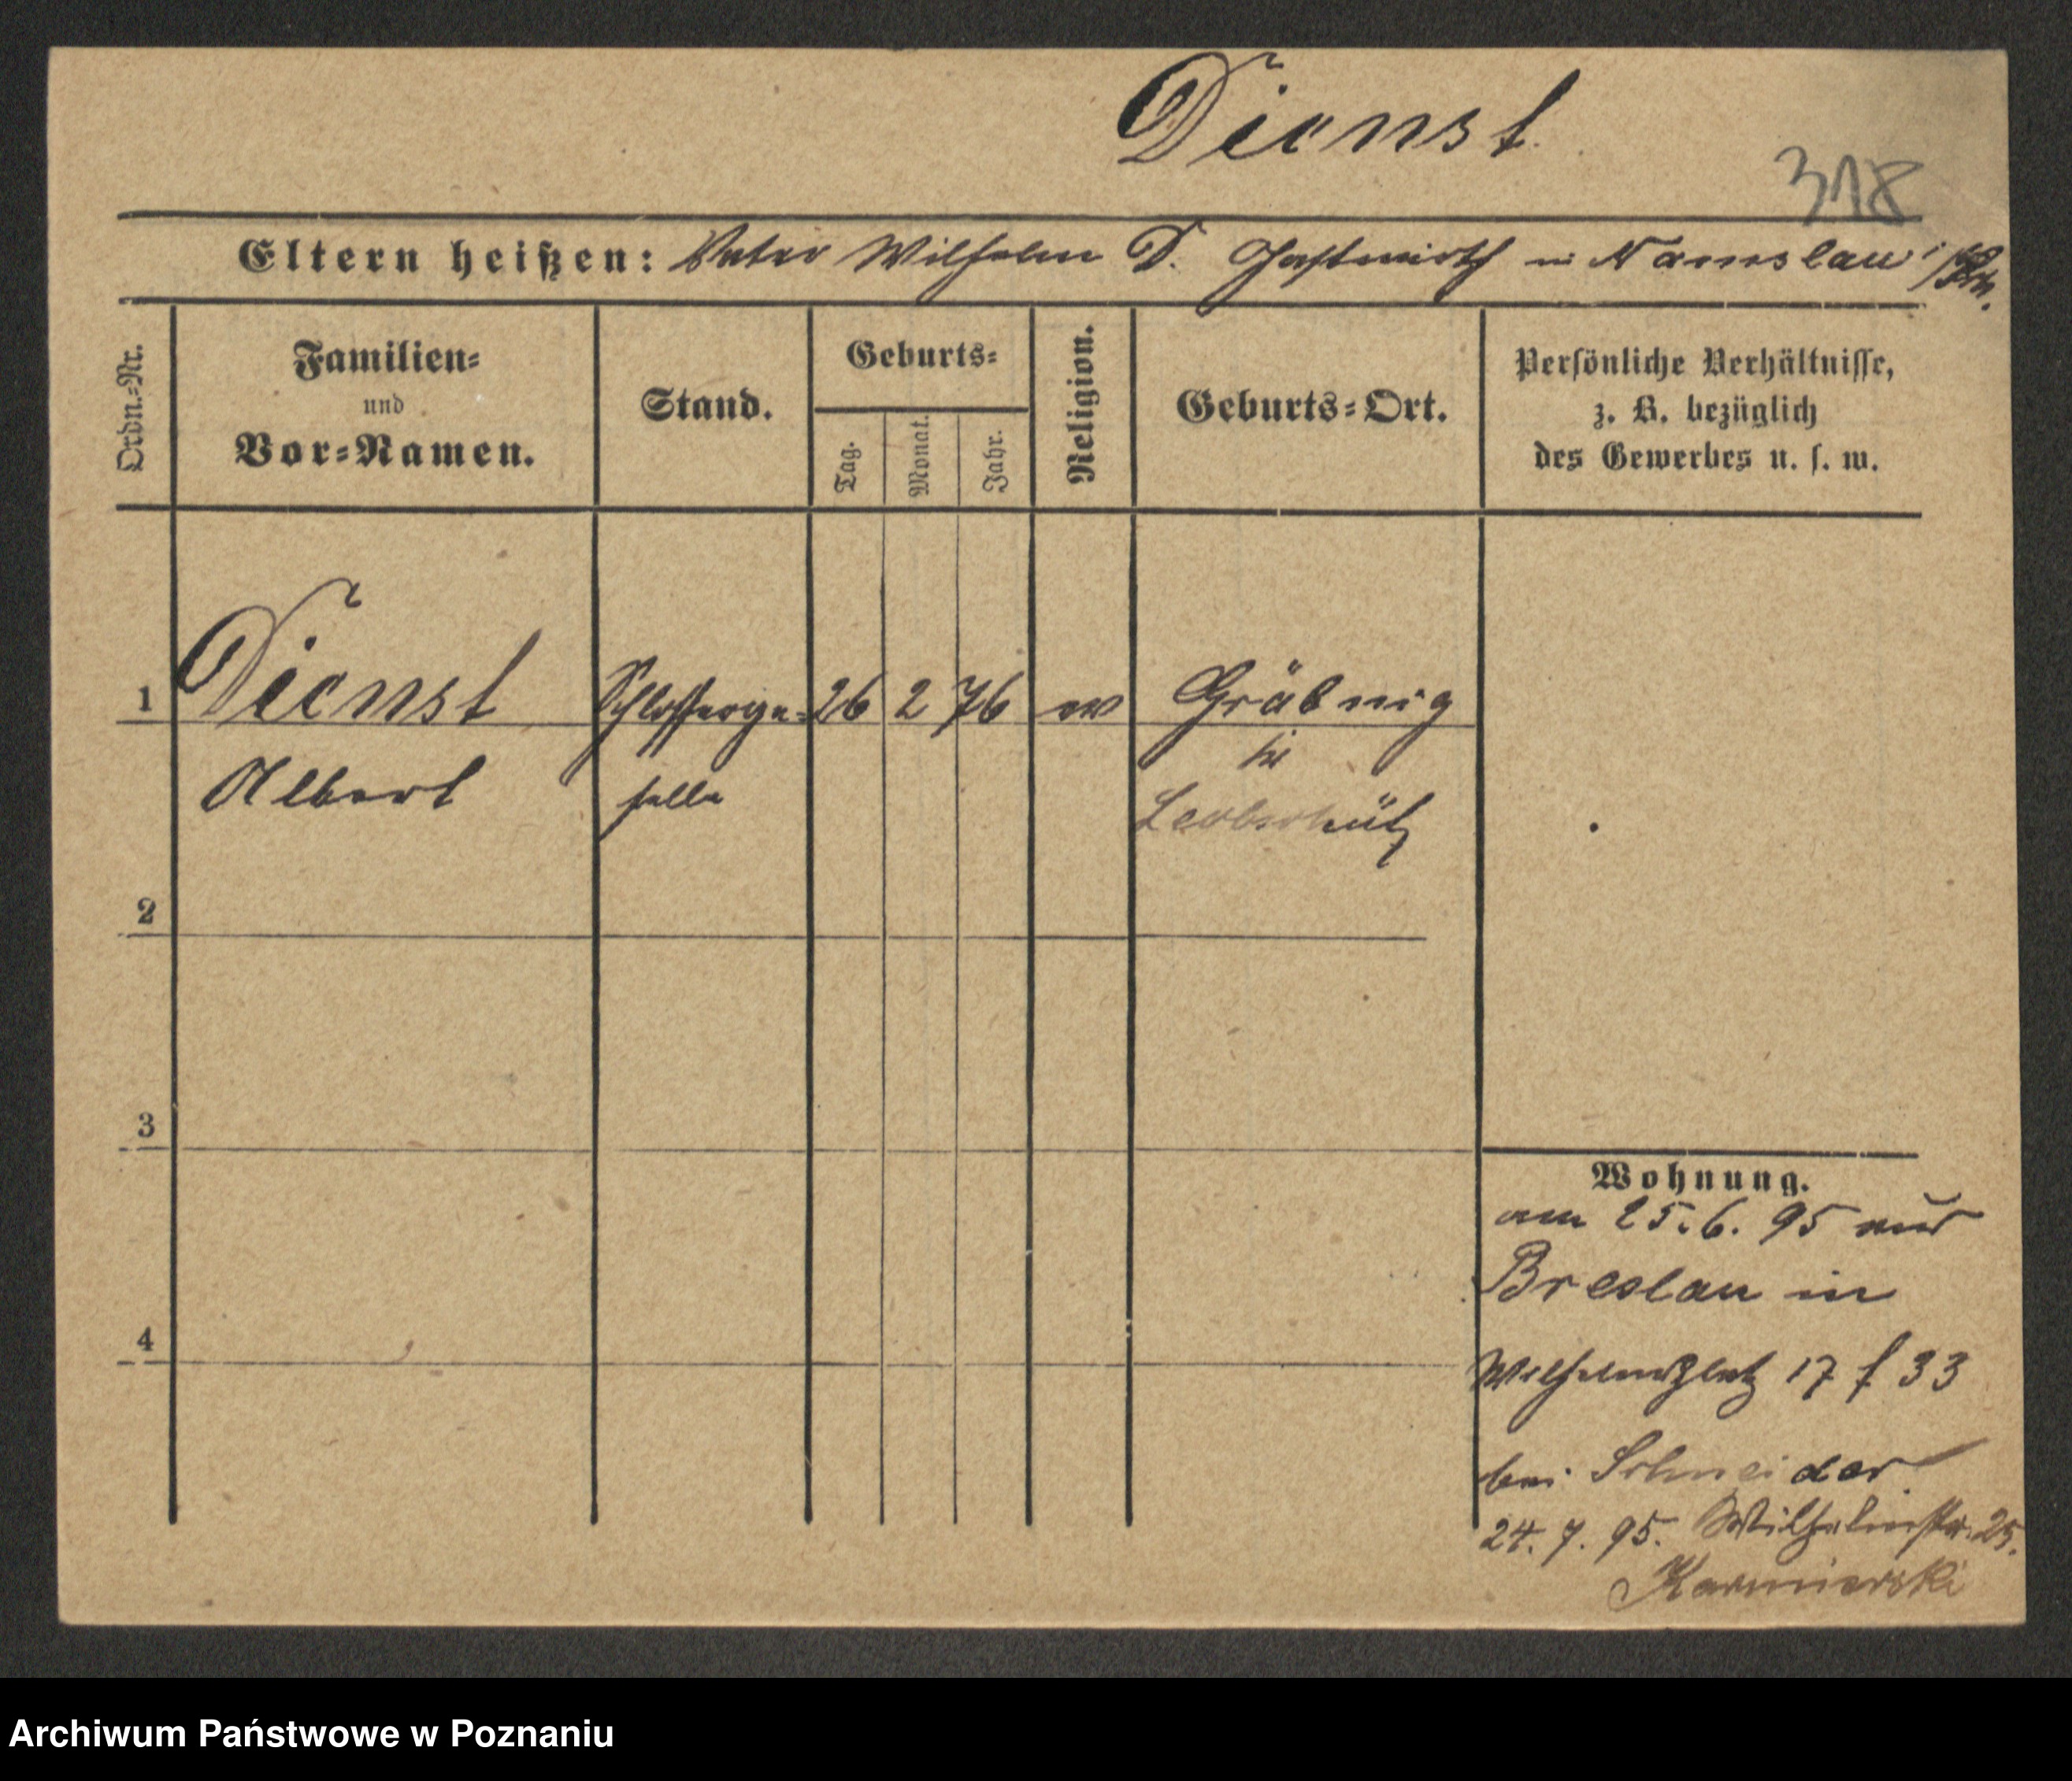 Dienst.
318
Eltern heißen: Vater Wilhelm D. Gastwirth in Namslau i/
Ordn.-Nr.
Familien-
und
Vor-Namen.
Stand.
Geburts-
Tag.
Monat.
Jahr.
Religion.
Geburts-Ort.
Persönliche Verhältnisse,
z. B. bezüglich
des Gewerbes u. s. w.
1 Dienst Schlosserge- 26 2 76 ev Gräbnig
Albert selle
Leobschütz
2
3
4
Wohnung.
am 25. 6. 95 aus
Breslau in
Wilhelmsplatz 17 f 33
bei Schneider
24. 7. 95. Wilhelmstr. 25.
Kazmierski
Archiwum Państwowe w Poznaniu